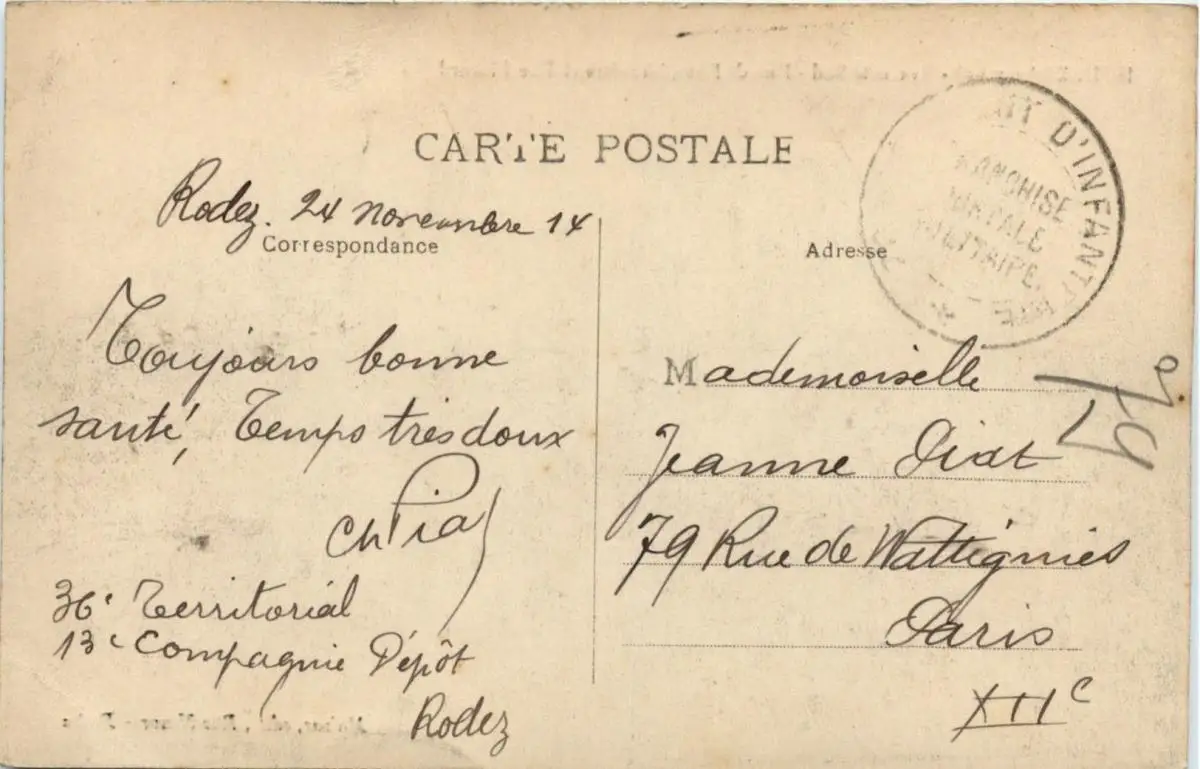 CARTE POSTALE
Rodez. 24 novembre 14
Correspondance
Toujours bonne
santé, Temps très doux
Ch Piat
36e Territorial
13e Compagnie Dépôt
Rodez
Adresse
D'INFANTERIE
Mademoiselle
Jeanne Piat
79 Rue de Wattignies
Paris
XIIe
79